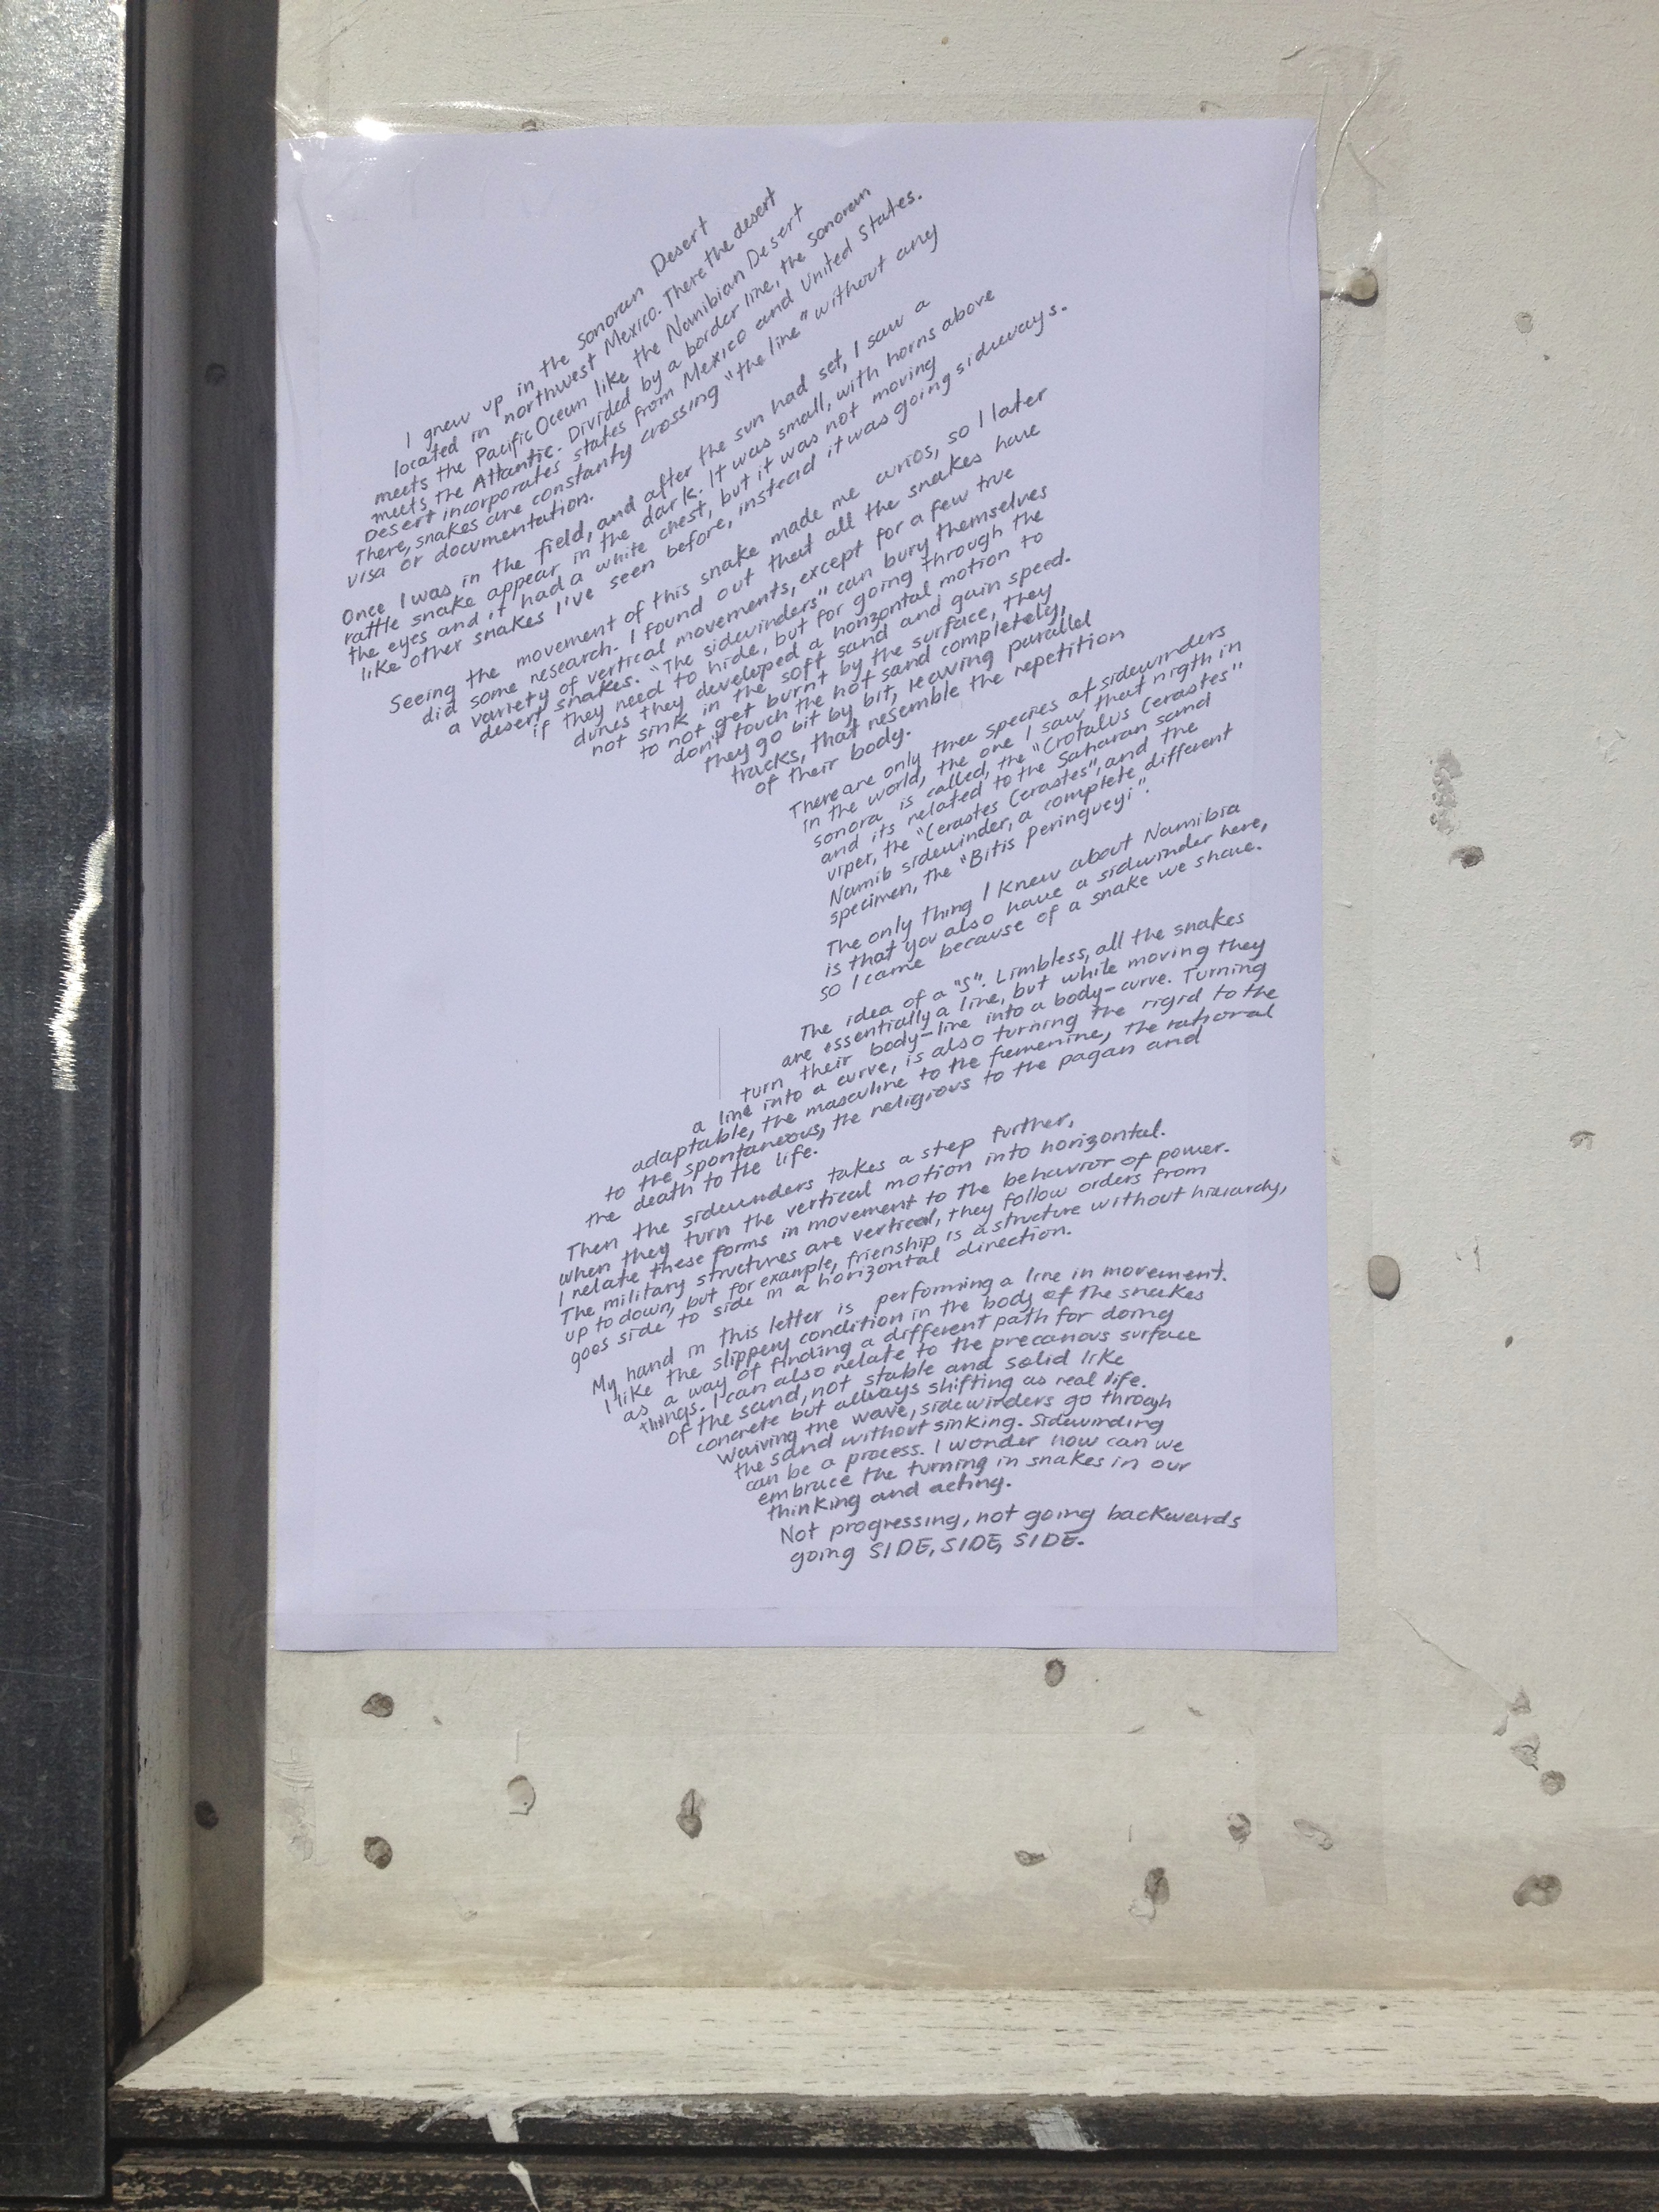 I grew up in the Sonoran Desert
located in northwest Mexico. There the desert
meets the Pacific Ocean like the Namibian Desert
meets the Atlantic. Divided by a border line, the Sonoran
Desert incorporates states from Mexico and United States.
There, snakes are constanty crossing "the line" without any
visa or documentation.
Once I was in the field, and after the sun had set, I saw a
rattle snake appear in the dark. It was small, with horns above
the eyes and it had a white chest, but it was not moving
like other snakes I've seen before, instead it was going sideways.
Seeing the movement of this snake made me curios, so I later
did some research. I found out that all the snakes have
a variety of vertical movements, except for a few true
desert snakes. "The sidewinders" can bury themselves
if they need to hide, but for going through the
dunes they developed a horizontal motion to
not sink in the soft sand and gain speed.
to not get burnt by the surface, they
don't touch the hot sand completely,
they go bit by bit, leaving parallel
tracks, that resemble the repetition
of their body.
There are only three species of sidewinders
in the world, the one I saw that nigth in
sonora is called, the "Crotalus Cerastes"
and its related to the Saharan sand
viper, the "Cerastes Cerastes", and the
Namib sidewinder, a complete different
specimen, the "Bitis Peringueyi".
The only thing I knew about Namibia
is that you also have a sidewinder here,
so I came because of a snake we share.
The idea of a "S". Limbless, all the snakes
are essentially a line, but while moving they
turn their body-line into a body-curve. Turning
a line into a curve, is also turning the rigid to the
adaptable, the masculine to the femenine, the rational
to the spontaneous, the religious to the pagan and
the death to the life.
Then the sidewinders takes a step further,
when they turn the vertical motion into horizontal.
I relate these forms in movement to the behavior of power.
The military structures are vertical, they follow orders from
up to down, but for example, frienship is a structure without hierarchy,
goes side to side in a horizontal direction.
My hand in this letter is performing a line in movement.
I like the slippery condition in the body of the snakes
as a way of finding a different path for doing
things. I can also relate to the precarious surface
of the sand, not stable and solid like
concrete but always shifting as real life.
Waiving the wave, sidewinders go through
the sand without sinking. Sidewinding
can be a process. I wonder how can we
embrace the turning in snakes in our
thinking and acting.
Not progressing, not going backwards
going SIDE, SIDE, SIDE.